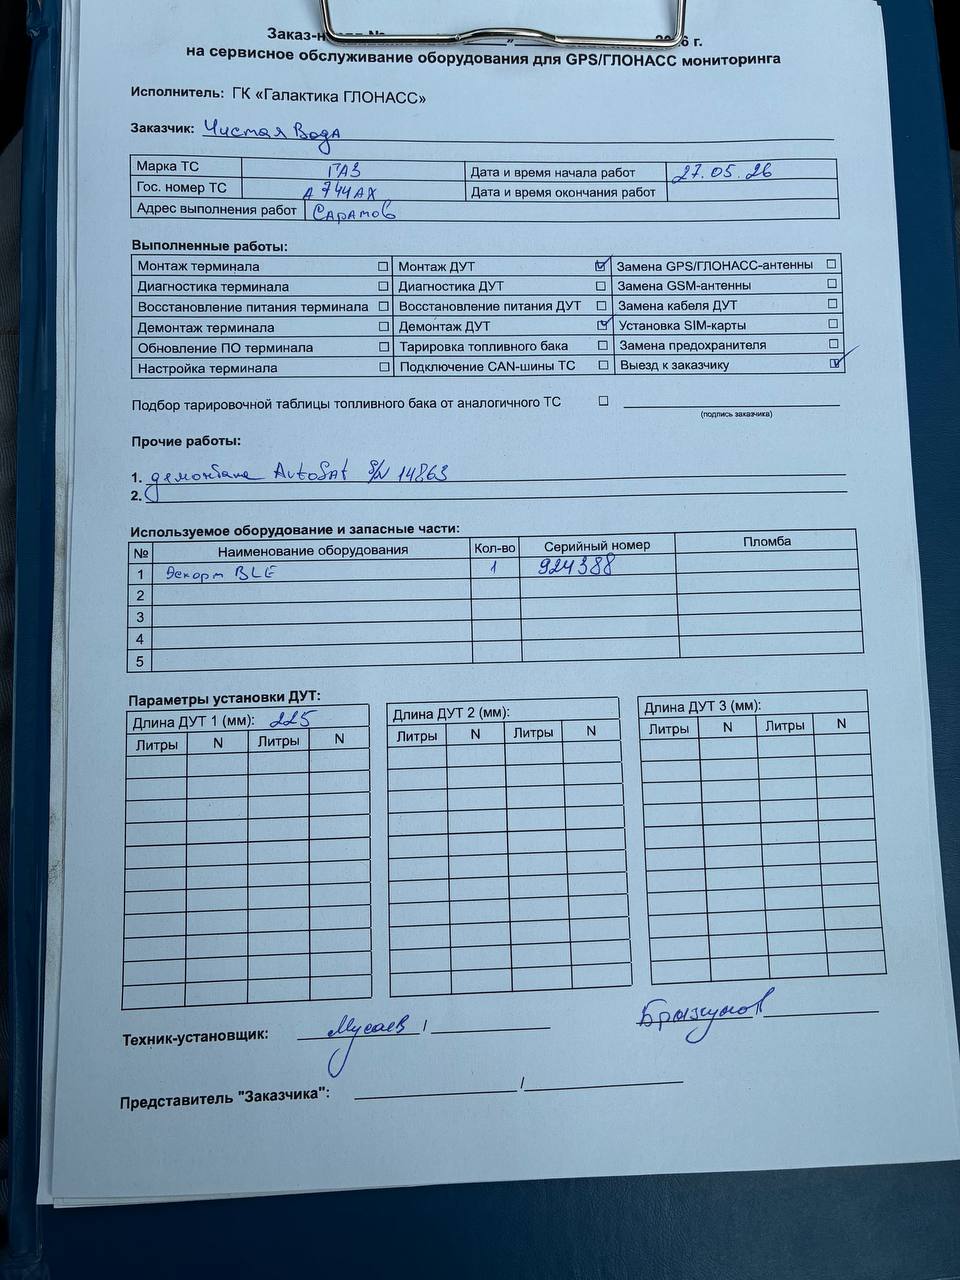 Заказ-наряд № 2026 г.
на сервисное обслуживание оборудования для GPS/ГЛОНАСС мониторинга
Исполнитель: ГК «Галактика ГЛОНАСС»
Заказчик: Чистая Вода
Марка ТС ГАЗ Дата и время начала работ 27.05.26
Гос. номер ТС А 744 АХ Дата и время окончания работ
Адрес выполнения работ Саратов
Выполненные работы:
Монтаж терминала ☐ Монтаж ДУТ ☑ Замена GPS/ГЛОНАСС-антенны ☐
Диагностика терминала ☐ Диагностика ДУТ ☐ Замена GSM-антенны ☐
Восстановление питания терминала ☐ Восстановление питания ДУТ ☐ Замена кабеля ДУТ ☐
Демонтаж терминала ☐ Демонтаж ДУТ ☑ Установка SIM-карты ☐
Обновление ПО терминала ☐ Тарировка топливного бака ☐ Замена предохранителя ☐
Настройка терминала ☐ Подключение CAN-шины ТС ☐ Выезд к заказчику ☑
Подбор тарировочной таблицы топливного бака от аналогичного ТС ☐
(подпись заказчика)
Прочие работы:
1. демонтаж AutoSat S/N 14863
2.
Используемое оборудование и запасные части:
№ Наименование оборудования Кол-во Серийный номер Пломба
1 Эскорт BLE 1 924388
2
3
4
5
Параметры установки ДУТ:
Длина ДУТ 1 (мм): 225 Длина ДУТ 2 (мм): Длина ДУТ 3 (мм):
Литры N Литры N Литры N Литры N Литры N Литры N
Техник-установщик: Мусаев /
Представитель "Заказчика": /